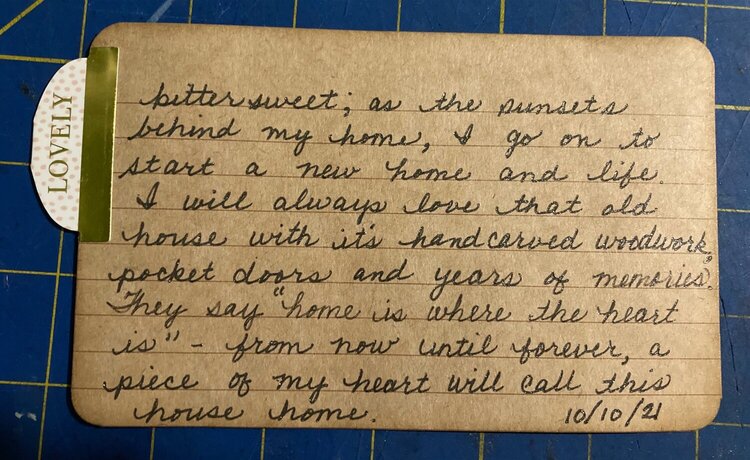 LOVELY
bittersweet; as the sunsets
behind my home, I go on to
start a new home and life.
I will always love that old
house with it's handcarved woodwork,
pocket doors and years of memories.
They say "home is where the heart
is" - from now until forever, a
piece of my heart will call this
house home. 10/10/21